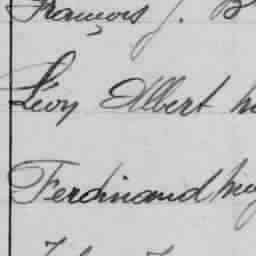 François J. B
Lévy Albert
Ferdinand